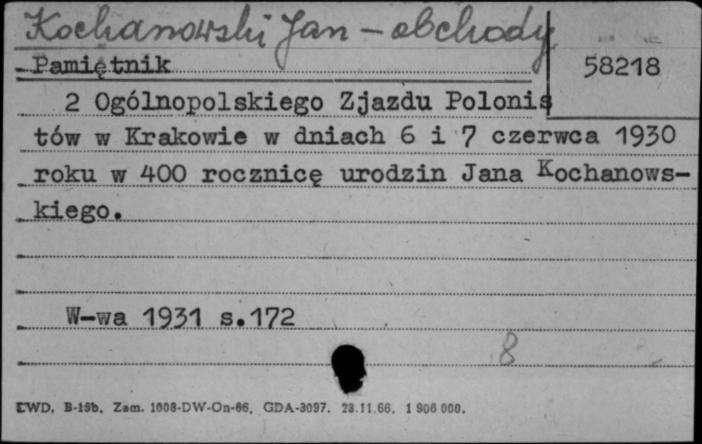 Kochanowski Jan - obchody
Pamiętnik
58218
2 Ogólnopolskiego Zjazdu Polonis
tów w Krakowie w dniach 6 i 7 czerwca 1930
roku w 400 rocznicę urodzin Jana Kochanows-
kiego.
W-wa 1931 s.172
8
LWD, B-15b, Zam. 1008-DW-On-66, GDA-3097. 23.11.66. 1 906 000.